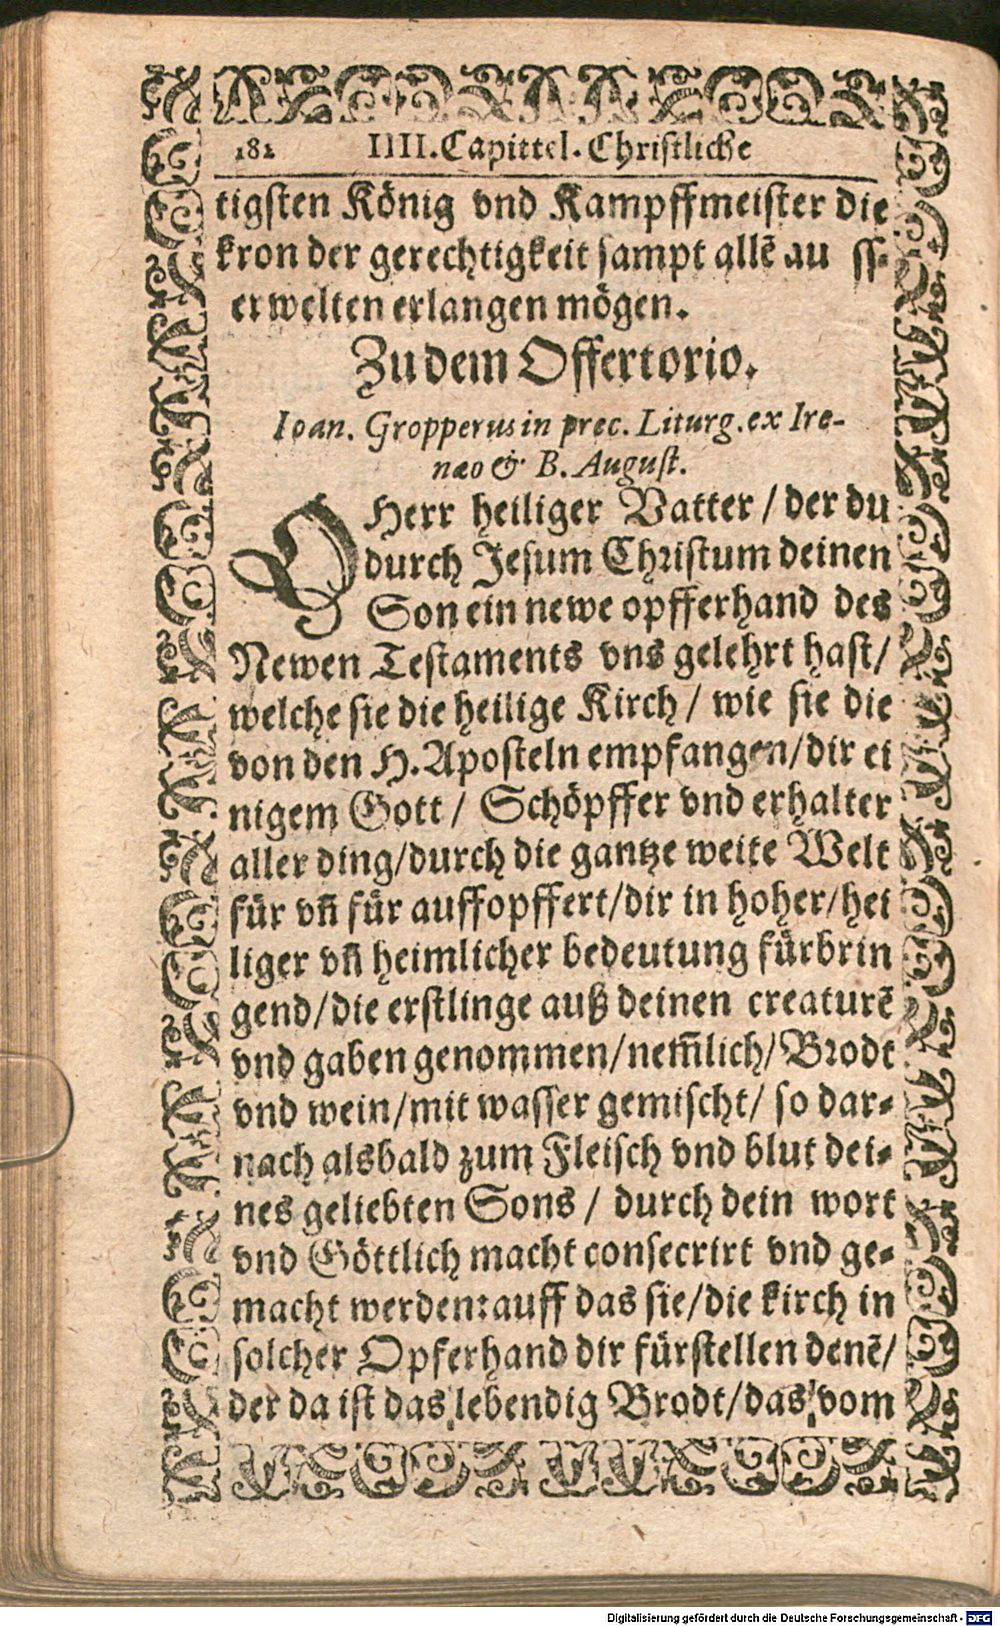 182 IIII. Capittel. Christliche
tigsten König vnd Kampffmeister die
kron der gerechtigkeit sampt allẽ au ss-
erwelten erlangen mögen.
Zu dem Offertorio.
Ioan. Gropperus in prec. Liturg. ex Ire-
næo & B. August.
O Herr heiliger Vatter / der du
durch Jesum Christum deinen
Son ein newe opfferhand des
Newen Testaments vns gelehrt hast/
welche sie die heilige Kirch / wie sie die
von den H. Aposteln empfangen/dir ei
nigem Gott / Schöpffer vnd erhalter
aller ding/durch die gantze weite Welt
für vñ für auffopffert/dir in hoher/hei
liger vñ heimlicher bedeutung fürbrin
gend/die erstlinge auß deinen creaturẽ
vnd gaben genommen/nem̃lich/Brodt
vnd wein/mit wasser gemischt/ so dar-
nach alsbald zum Fleisch vnd blut dei-
nes geliebten Sons / durch dein wort
vnd Göttlich macht consecrirt vnd ge-
macht werden: auff das sie/die kirch in
solcher Opferhand dir fürstellen denẽ/
der da ist das lebendig Brodt/das vom
Digitalisierung gefördert durch die Deutsche Forschungsgemeinschaft - DFG